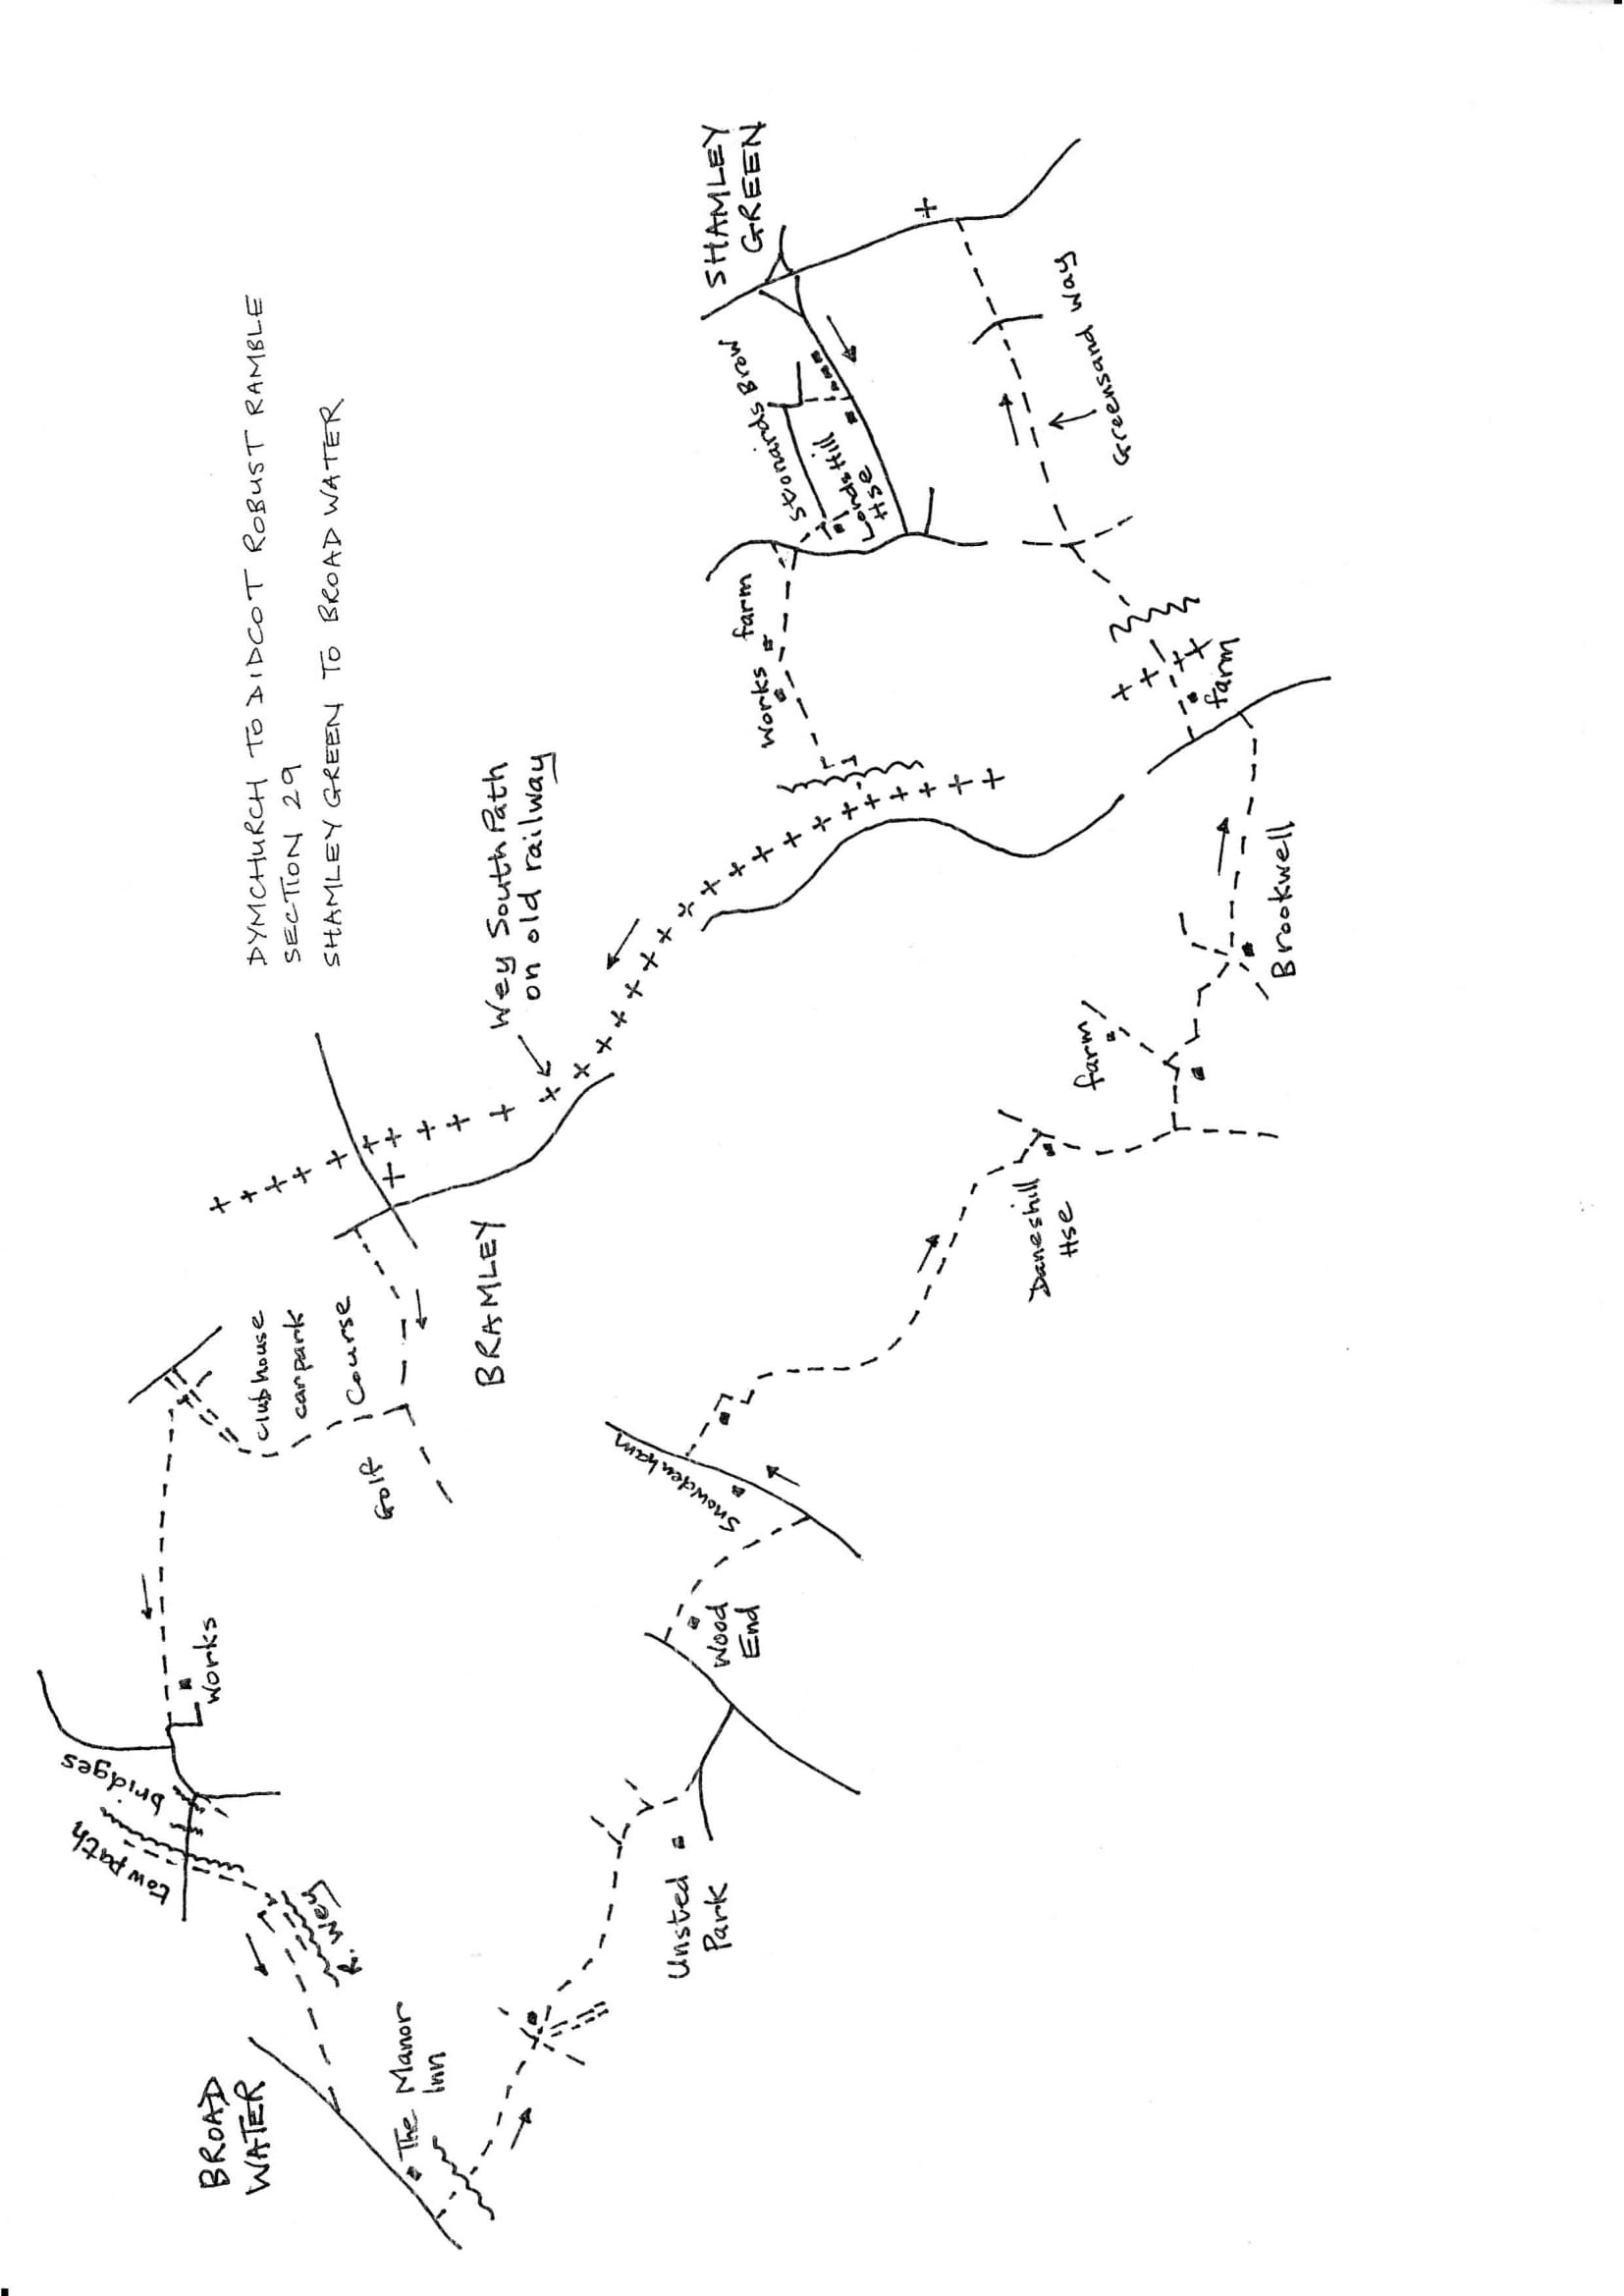 DYMCHURCH TO DIDCOT ROBUST RAMBLE
SECTION 29
SHAMLEY GREEN TO BROAD WATER
tow path
bridges
Works
BROAD
WATER
R. Wey
The Manor
Inn
clubhouse
carpark
Golf Course
BRAMLEY
Wey South Path
on old railway
Unsted
Park
Wood
End
Snowdenham
Works farm
Stonards Brow
SHAMLEY
GREEN
Lords Hill
Hse
Daneshill
Hse
farm
Brookwell
farm
Greensand Way